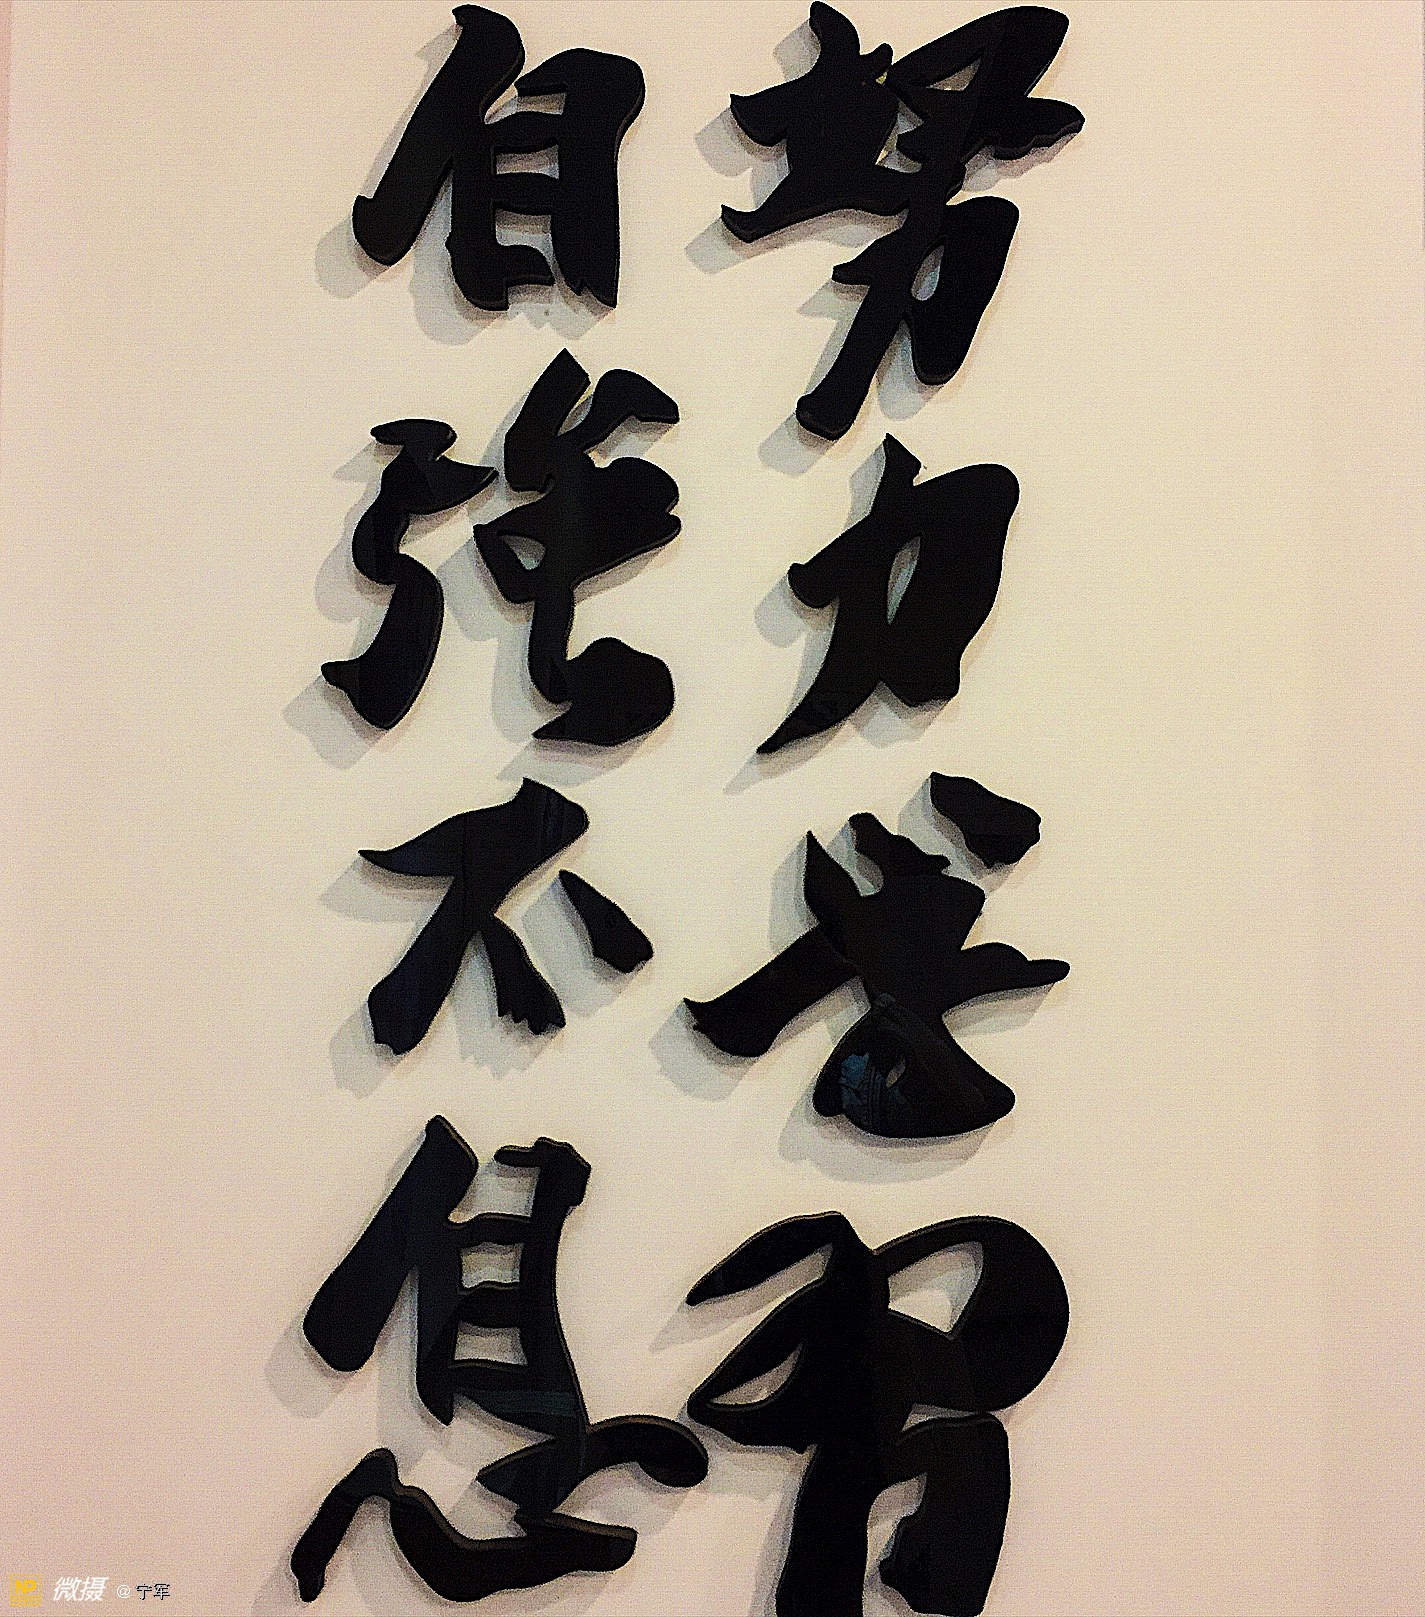 努力学習
自強不息
微摄 @宁军